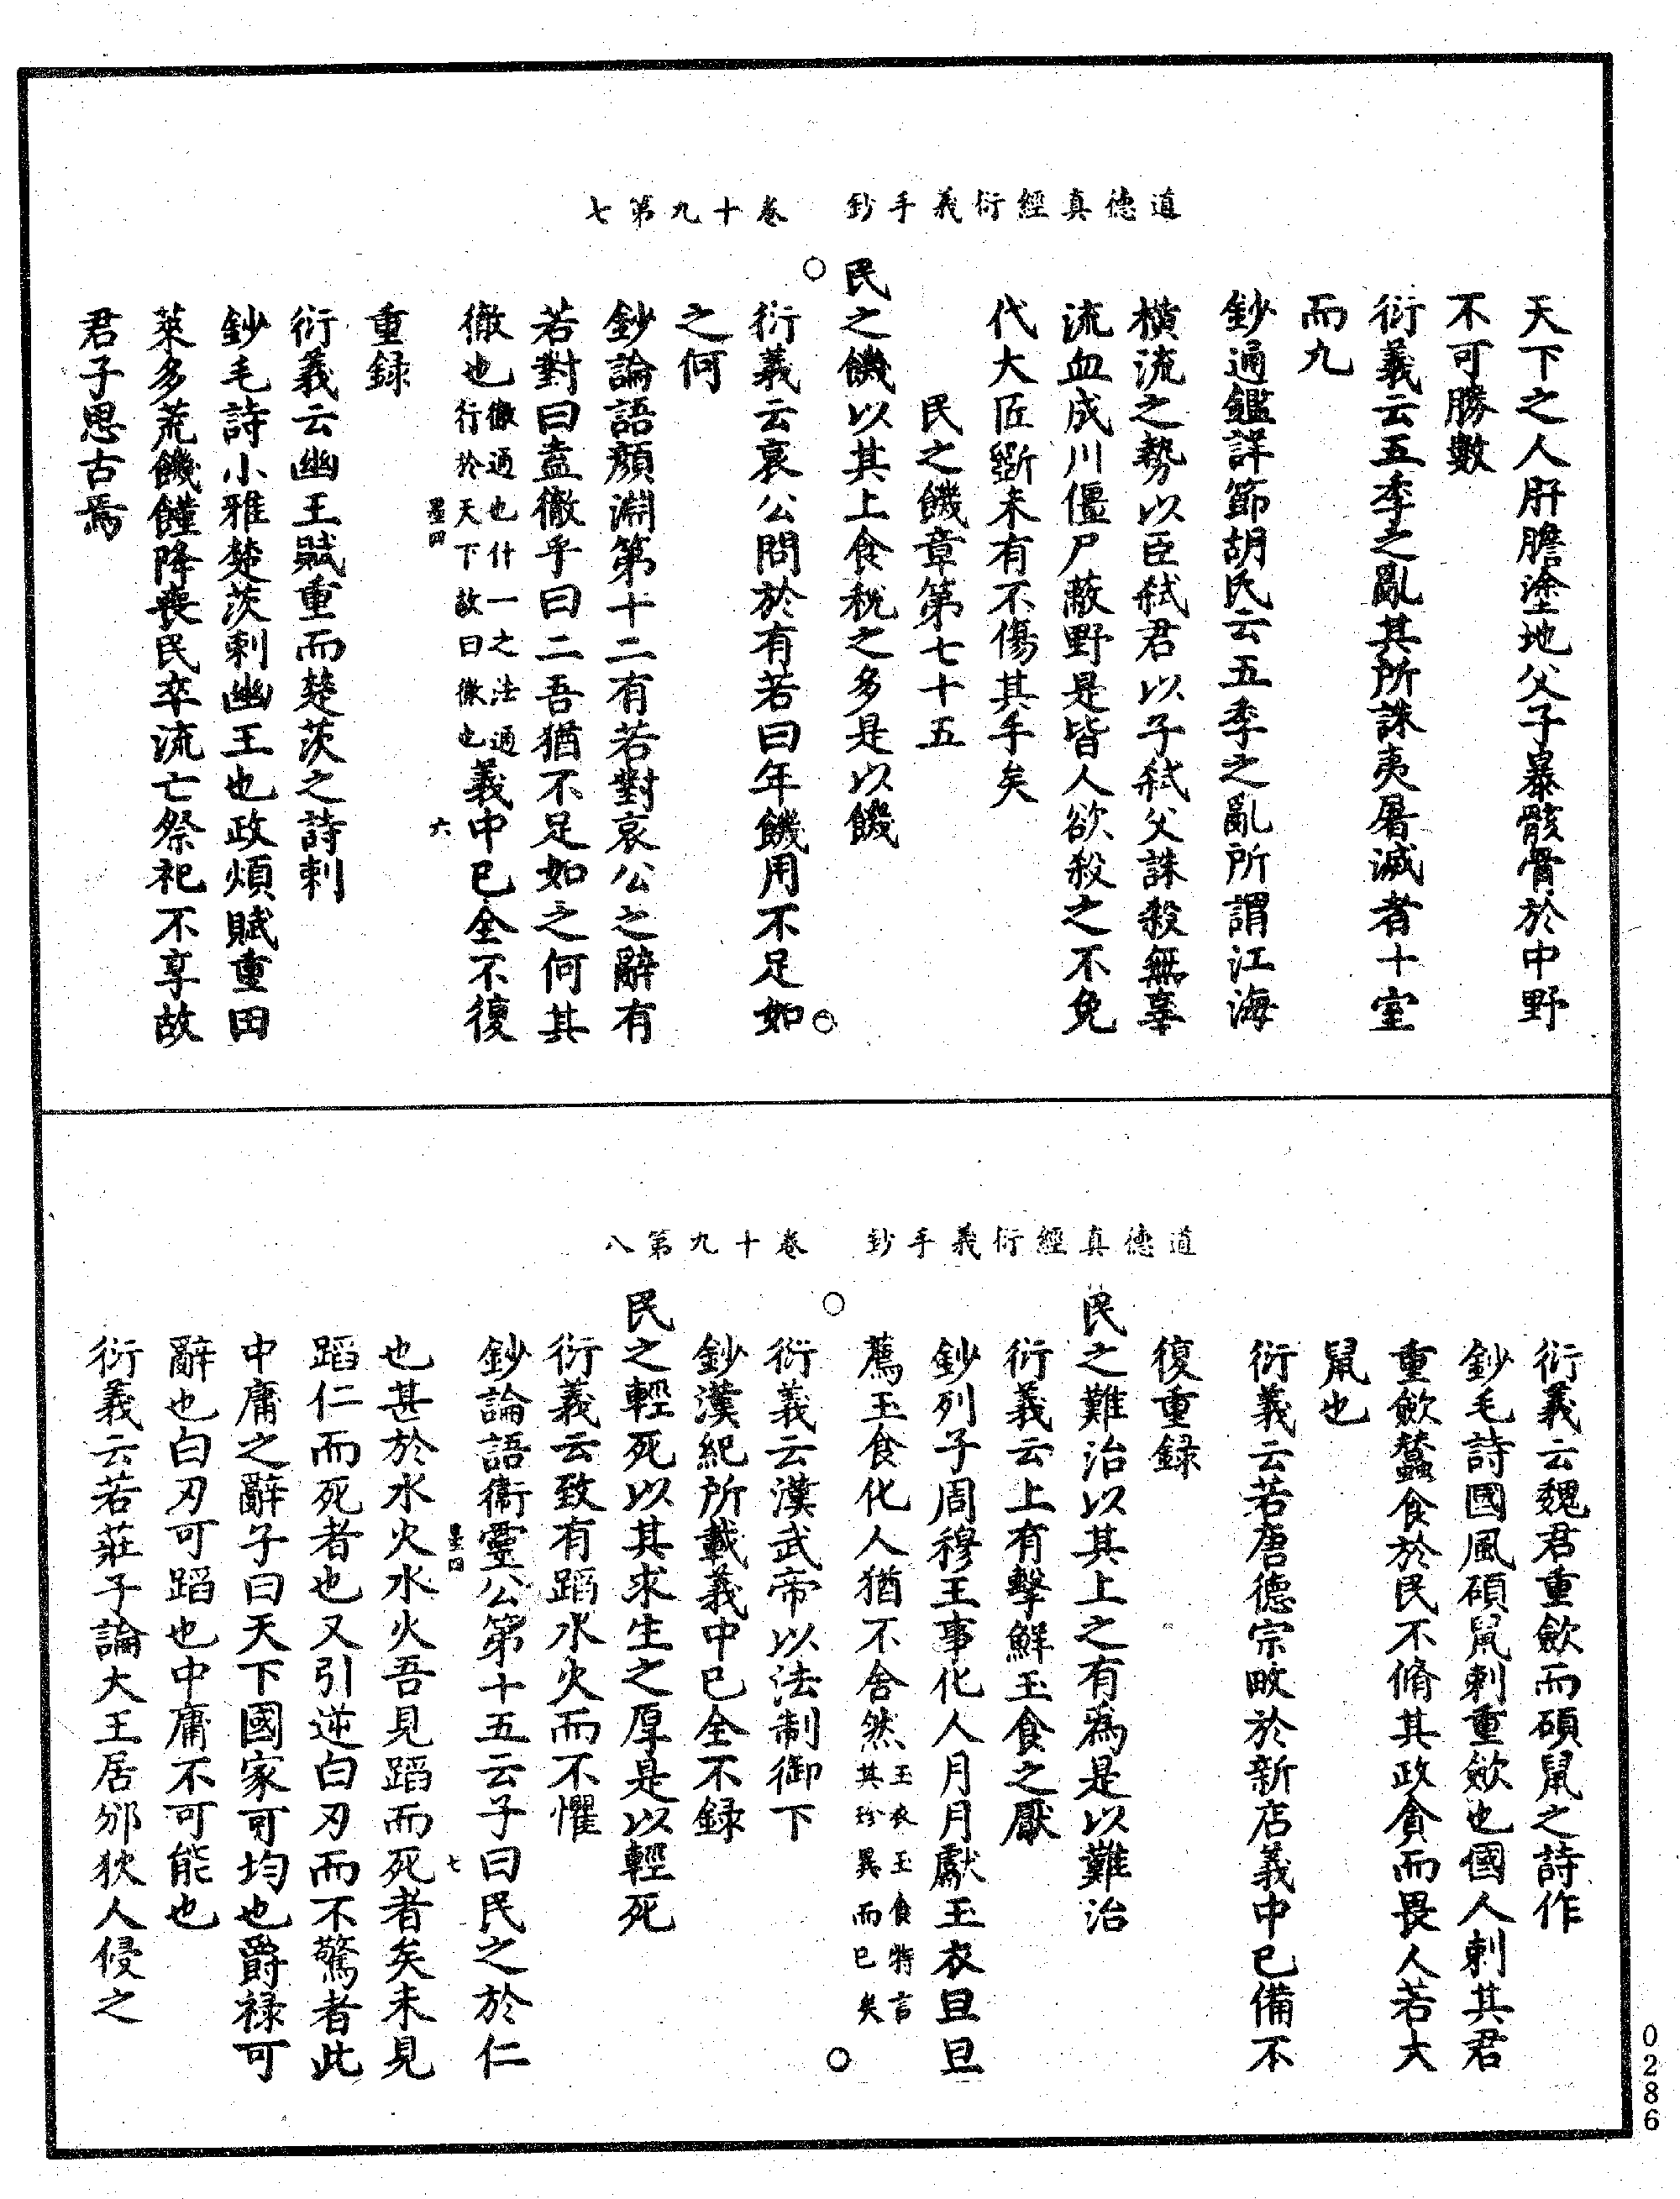 道德真經衍義手鈔　卷十九第七
天下之人肝膽塗地父子暴骸骨於中野
不可勝數
衍義云五季之亂其所誅夷屠滅者十室
而九
鈔通鑑詳節胡氏云五季之亂所謂江海
橫流之勢以臣弒君以子弒父誅殺無辜
流血成川僵尸蔽野是皆人欲殺之不免
代大匠斲未有不傷其手矣
民之饑章第七十五
民之饑以其上食稅之多是以饑
衍義云哀公問於有若曰年饑用不足如
之何
鈔論語顏淵第十二有若對哀公之辭有
若對曰盍徹乎曰二吾猶不足如之何其
徹也徹通也什一之法通行於天下故曰徹也義中已全不復
墨四　六
重録
衍義云幽王賦重而楚茨之詩刺
鈔毛詩小雅楚茨刺幽王也政煩賦重田
萊多荒饑饉降喪民卒流亡祭祀不享故
君子思古焉
道德真經衍義手鈔　卷十九第八
衍義云魏君重斂而碩鼠之詩作
鈔毛詩國風碩鼠刺重斂也國人刺其君
重斂蠶食於民不脩其政貪而畏人若大
鼠也
衍義云若唐德宗畋於新店義中已備不
復重録
民之難治以其上之有為是以難治
衍義云上有擊鮮玉食之厭
鈔列子周穆王事化人月月獻玉衣旦旦
薦玉食化人猶不舍然玉衣玉食特言其珍異而已矣
衍義云漢武帝以法制御下
鈔漢紀所載義中已全不録
民之輕死以其求生之厚是以輕死
衍義云致有蹈水火而不懼
鈔論語衛靈公第十五云子曰民之於仁
墨四　七
也甚於水火水火吾見蹈而死者矣未見
蹈仁而死者也又引逆白刃而不驚者此
中庸之辭子曰天下國家可均也爵祿可
辭也白刃可蹈也中庸不可能也
衍義云若莊子論大王居邠狄人侵之
0286